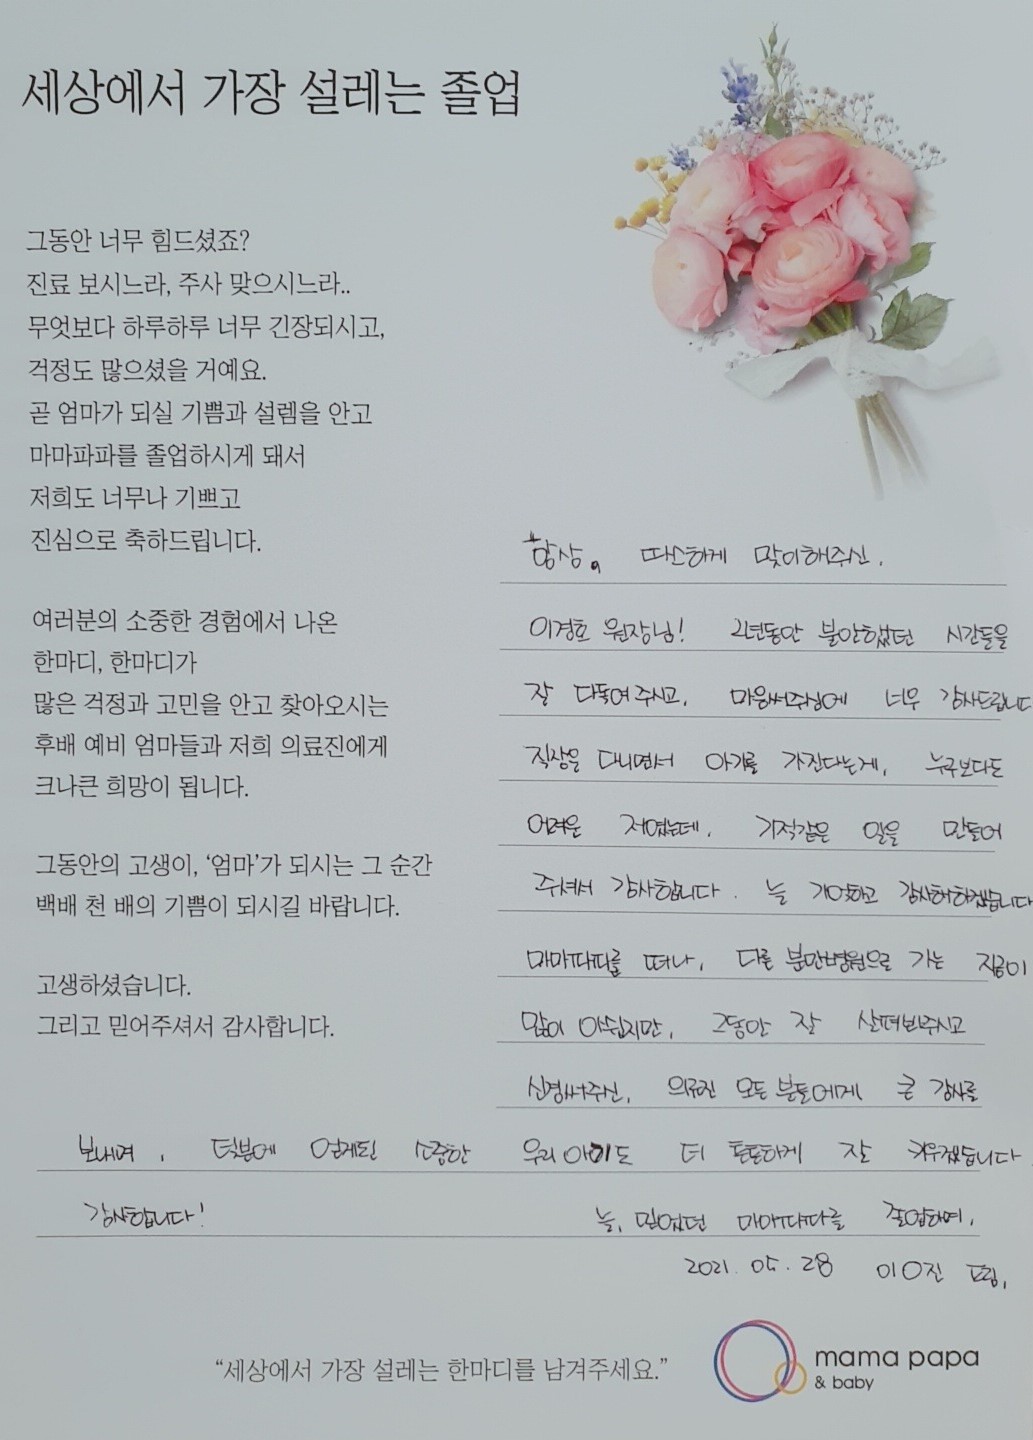 세상에서 가장 설레는 졸업
그동안 너무 힘드셨죠?
진료 보시느라, 주사 맞으시느라..
무엇보다 하루하루 너무 긴장되시고,
걱정도 많으셨을 거예요.
곧 엄마가 되실 기쁨과 설렘을 안고
마마파파를 졸업하시게 돼서
저희도 너무나 기쁘고
진심으로 축하드립니다.
여러분의 소중한 경험에서 나온
한마디, 한마디가
많은 걱정과 고민을 안고 찾아오시는
후배 예비 엄마들과 저희 의료진에게
크나큰 희망이 됩니다.
그동안의 고생이, ‘엄마’가 되시는 그 순간
백배 천 배의 기쁨이 되시길 바랍니다.
고생하셨습니다.
그리고 믿어주셔서 감사합니다.
항상. 따스하게 맞이해주신.
이경호 원장님! 2년동안 불안했던 시간들을
잘 다독여주시고, 마음써주심에 너무 감사드립니다
직장을 다니면서 아기를 가진다는게, 누구보다도
어려운 저였는데, 기적같은 일을 만들어
주셔서 감사합니다. 늘 기억하고 감사해하겠습니다
마마파파를 떠나, 다른 분만병원으로 가는 지금이
많이 아쉽지만, 그동안 잘 살펴봐주시고
신경써주신, 의료진 모든 분들에게 큰 감사를
보내며, 덕분에 얻게된 소중한 우리 아기도 더 튼튼하게 잘 키우겠습니다
감사합니다! 늘, 믿었던 마마파파를 졸업하며,
2021. 05. 28 이O진 드림.
“세상에서 가장 설레는 한마디를 남겨주세요.”
mama papa
& baby